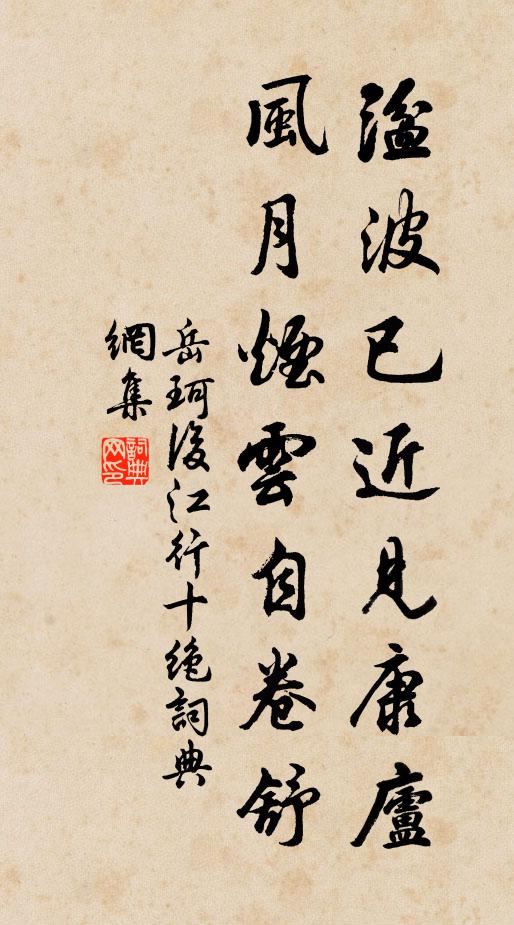 湓波已近見康廬
風月煙雲自卷舒
岳珂後江行十絶詞典
網集
詞典網印